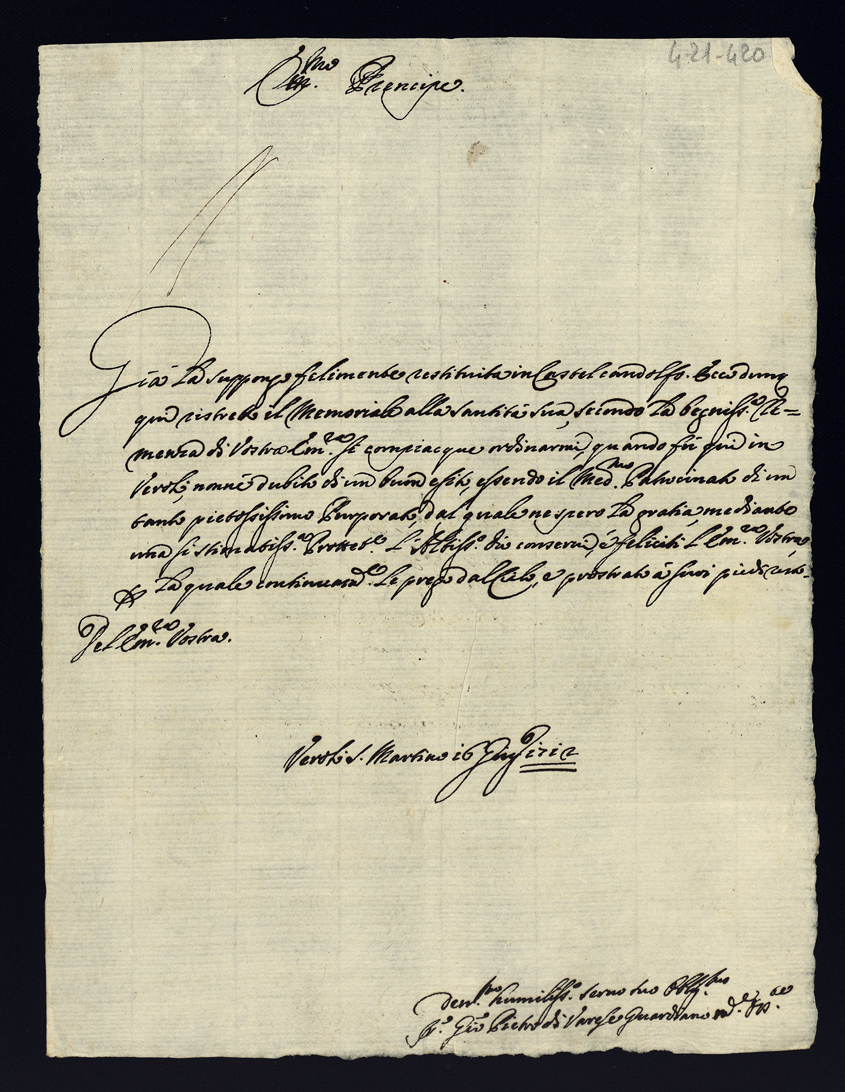 4-21-420
Em.mo Prencipe.
Già La suppongo felimente restituita in Castel candolfo. Ecco dunq
qui ristretto il Memoriale alla Santità sua, secondo La begniss.a Cle=
menza di Vostra Em.za si compiacque ordinarmi, quando fù quì in
Veroli, non nè dubito di un buon esito, essendo il Med.mo Patrocinato di un
tanto pietosissimo Purporato, dal quale ne spero La gratia, mediante
una si stimatiss.a Prottet.e L'Altiss.o Dio conservi, è feliciti L'Em.za Vostra
La quale continuam.te Le prego dal Cielo, e prostrato à suoi piedi resto.
Del'Em.za Vostra.
Veroli S. Martino 16 Giug. 1712
Dev.mo humiliss.o servo suo Oblig.mo
F. Gio Pietro di Varese Guardiano